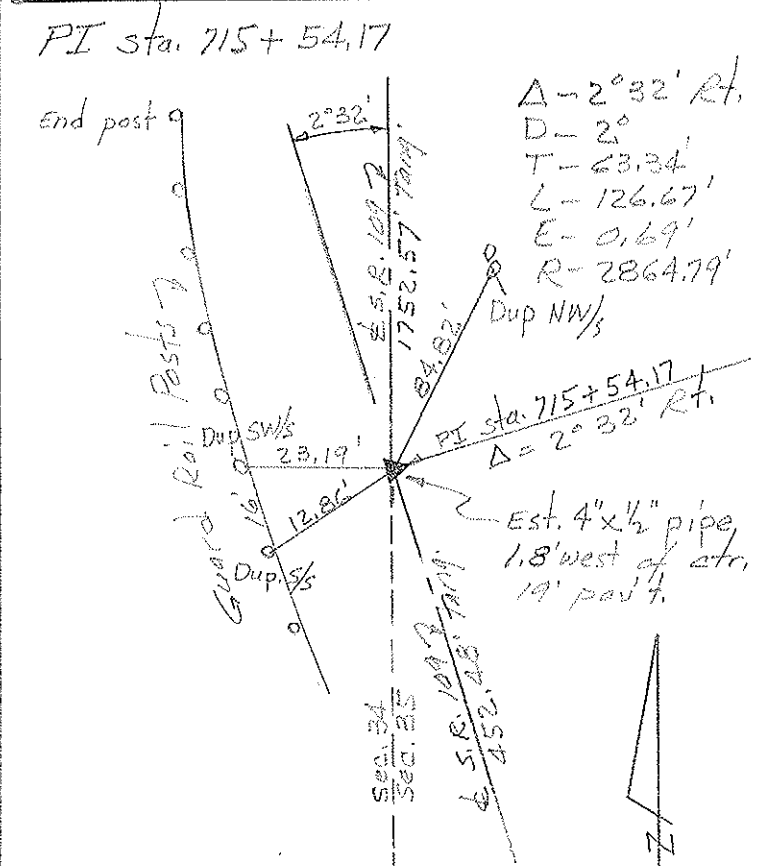 PI sta. 715+54.17
End post
2°32'
Δ - 2°32' Rt.
D - 2°
T - 63.34'
L - 126.67'
E - 0.69'
R - 2864.79'
℄ S.R. 109
1752.57' Tang.
Dup NW/s
84.82'
Guard Rail Posts
PI sta. 715+54.17
Δ = 2° 32' Rt.
Dup SW/s
23.19'
16'
12.86'
Dup. S/s
Est. 4"x1/2" pipe,
1.8' west of ctr.
19' pav't.
Sec. 34
Sec. 35
℄ S.R. 109
452.48' Tang.
N